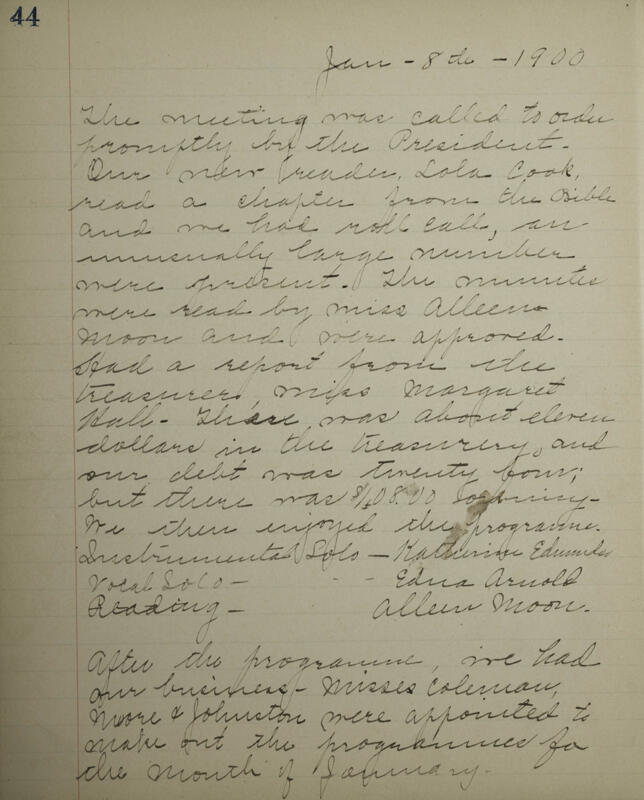 44
Jan - 8th - 1900
The meeting was called to order
promptly by the President.
Our new reader, Lola Cook,
read a chapter from the Bible
and we had roll call, an
unusually large number
were present. The minutes
were read by miss Alleen
Moon and were approved.
Had a report from the
treasurer, miss Margaret
Hall - There was about eleven
dollars in the treasurery, and
our debt was twenty four;
but there was
We then enjoyed the programme.
Instrumental Solo - Katherine Edmunds
Vocal Solo - - - Edna Arnold
Reading - Alleen Moon.
After the programme, we had
our business - Misses Coleman,
Moore & Johnston were appointed to
make out the programmes fo
the month of January.